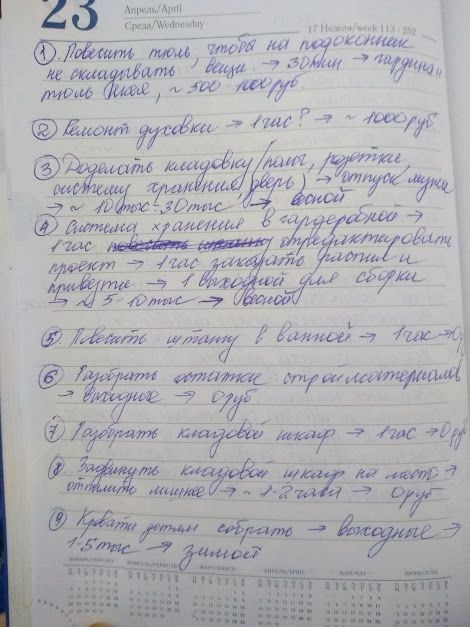 23
Апрель/April
Среда/Wednesday
17 Неделя/week 113 - 252
① Повесить тюль, чтобы на подоконник
не складывать вещи → 30 мин → гардина и
тюль Икея, ~ 500-1000 руб.
② Ремонт духовки → 1 час? → ~ 1000 руб.
③ Доделать кладовку (полы, розетки,
систему хранения, дверь) → отпуск мужа
→ ~ 10 тыс-30 тыс → весной
④ Система хранения в гардеробной →
1 час отредактировать
проект → 1 час заказать распил и
привезти → 1 выходной для сборки
→ ~ 5-10 тыс → весной
⑤ Повесить штангу в ванной → 1 час →
⑥ Разобрать остатки стройматериалов
→ выходные → 0 руб.
⑦ Разобрать кладовой шкаф → 1 час → 0 руб
⑧ Задвинуть кладовой шкаф на место →
отпилить лишнее → ~ 1-2 часа → 0 руб
⑨ Кровати детям собрать → выходные →
1-5 тыс → зимой
ЯНВАРЬ/JANUARY ФЕВРАЛЬ/FEBRUARY МАРТ/MARCH АПРЕЛЬ/APRIL МАЙ/MAY ИЮНЬ/JUNE